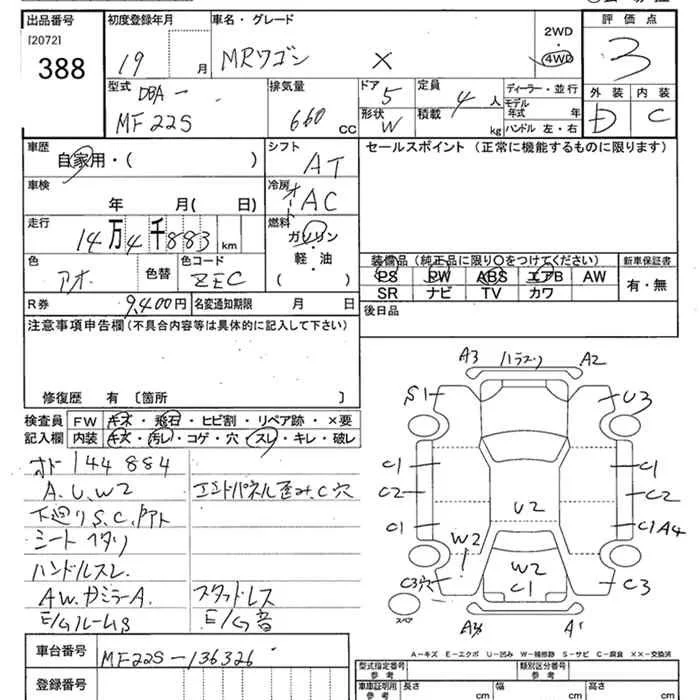 出品番号 初度登録年月 車名・グレード 2WD 評価点
[2072] 388 19 月 MRワゴン X 4WD 3
型式 排気量 ドア 定員 ディーラー・並行 外装 内装
DBA- 660 CC 5 4 人 モデル年式 年 D C
MF22S 形状 W 積載 kg ハンドル 左・右
車歴 シフト セールスポイント (正常に機能するものに限ります)
自家用・( ) AT
車検 冷房
年 月( 日) オート AC
走行 燃料
14万4千883 km ガソリン・軽・油 ( )
色 色替 色コード 装備品 (純正品に限り○をつけてください) 新車保証書
アオ ZEC PS PW ABS エアB AW 有・無
SR ナビ TV カワ
R券 9,400円 名変通知期限 月 日 後日品
注意事項申告欄 (不具合内容等は具体的に記入して下さい)
修復歴 有 [箇所 ]
検査員 FW キズ・飛石・ヒビ割・リペア跡・×要
記入欄 内装 キズ・汚レ・コゲ・穴・スレ・キレ・破レ
オド 144884
A.U.W2 エンドパネル歪み.C穴
下廻りS.C.
シートヘタリ
ハンドルスレ
AW.ガラミラーA. スタッドレス
E/Gルーム E/G音
車台番号 MF22S-136326
登録番号
A3 A2
S1 U3
C1 C1
C2 C2
U2
C1 C1 A4
W2 W2
C3穴 C1 C3
スペア
A1
A-キズ E-エクボ U-凹み W-補修跡 S-サビ C-腐食 ××-交換済
型式指定番号 参考 類別区分番号 参考
車庫証明用 参考 長さ cm 幅 cm 高さ cm